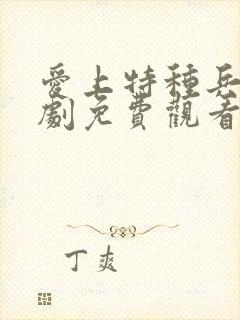 愛上特種兵
劇免費觀看
丁爽